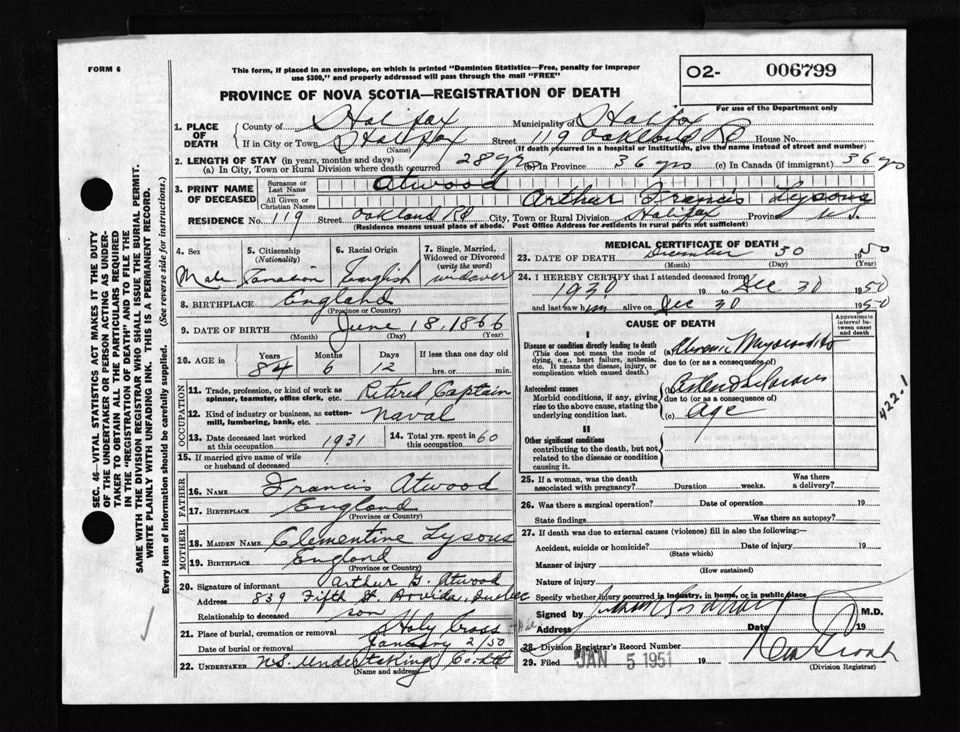 FORM 6
This form, if placed in an envelope, on which is printed "Dominion Statistics—Free, penalty for improper
use $300," and properly addressed will pass through the mail "FREE"
O2- 006799
PROVINCE OF NOVA SCOTIA—REGISTRATION OF DEATH
For use of the Department only
1. PLACE OF DEATH
County of Halifax Municipality of Halifax
If in City or Town Halifax Street 119 Oakland Rd House No.
(Name) (If death occurred in a hospital or institution, give the name instead of street and number)
2. LENGTH OF STAY (in years, months and days)
(a) In City, Town or Rural Division where death occurred 28 yrs (b) In Province 36 yrs (c) In Canada (if immigrant) 36 yrs
3. PRINT NAME OF DECEASED
Surname or Last Name Atwood
All Given or Christian Names Arthur Francis Lysons
RESIDENCE No. 119 Street Oakland Rd City, Town or Rural Division Halifax Province N.S.
(Residence means usual place of abode. Post Office Address for residents in rural parts not sufficient)
4. Sex
Male
5. Citizenship
(Nationality)
Canadian
6. Racial Origin
English
7. Single, Married,
Widowed or Divorced
(write the word)
widower
8. BIRTHPLACE England
(Province or Country)
9. DATE OF BIRTH June 18, 1866
(Month) (Day) (Year)
10. AGE in Years Months Days If less than one day old
84 6 12 hrs. or min.
OCCUPATION
11. Trade, profession, or kind of work as
spinner, teamster, office clerk, etc. Retired Captain
12. Kind of industry or business, as cotton-
mill, lumbering, bank, etc. Naval
13. Date deceased last worked
at this occupation 1931
14. Total yrs. spent in
this occupation 60
15. If married give name of wife
or husband of deceased
FATHER
16. NAME Francis Atwood
17. BIRTHPLACE England
(Province or Country)
MOTHER
18. MAIDEN NAME Clementine Lysons
19. BIRTHPLACE England
(Province or Country)
20. Signature of informant Arthur G. Atwood
Address 839 Fifth St. Arvida, Quebec
Relationship to deceased son
21. Place of burial, cremation or removal Holy Cross
Date of burial or removal January 2/50
22. UNDERTAKER N.S. Undertaking Co. Ltd
(Name and address)
MEDICAL CERTIFICATE OF DEATH
23. DATE OF DEATH December 30 1950
(Month) (Day) (Year)
24. I HEREBY CERTIFY that I attended deceased from
1930 19 to Dec 30 1950
and last saw him alive on Dec 30 1950
CAUSE OF DEATH
Approximate
interval between
onset and
death
I
Disease or condition directly leading to death
(This does not mean the mode of
dying, e.g., heart failure, asthenia,
etc. It means the disease, injury, or
complication which caused death.)
(a) Chronic Myocarditis
due to (or as a consequence of)
Antecedent causes
Morbid conditions, if any, giving
rise to the above cause, stating the
underlying condition last.
(b)
due to (or as a consequence of)
(c) Age
422.1
II
Other significant conditions
contributing to the death, but not
related to the disease or condition
causing it.
25. If a woman, was the death
associated with pregnancy? Duration weeks. Was there
a delivery?
26. Was there a surgical operation? Date of operation 19
State findings Was there an autopsy?
27. If death was due to external causes (violence) fill in also the following:—
Accident, suicide or homicide? Date of injury 19
(State which)
Manner of injury
(How sustained)
Nature of injury
Specify whether injury occurred in industry, in home, or in public place
Signed by M.D.
Address Date 19
28. Division Registrar's Record Number
29. Filed JAN 5 1951 19
(Division Registrar)
SEC. 46—VITAL STATISTICS ACT MAKES IT THE DUTY
OF THE UNDERTAKER OR PERSON ACTING AS UNDER-
TAKER TO OBTAIN ALL THE PARTICULARS REQUIRED
IN THE "REGISTRATION OF DEATH" AND TO FILE THE
SAME WITH THE DIVISION REGISTRAR WHO SHALL ISSUE THE BURIAL PERMIT.
WRITE PLAINLY WITH UNFADING INK. THIS IS A PERMANENT RECORD.
Every item of information should be carefully supplied. (See reverse side for instructions.)